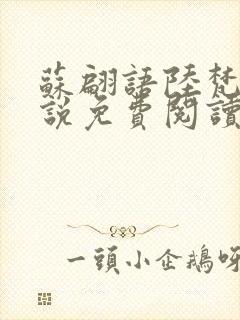 蘇翩語陸梵
說免費閱讀
一頭小企鵝呀